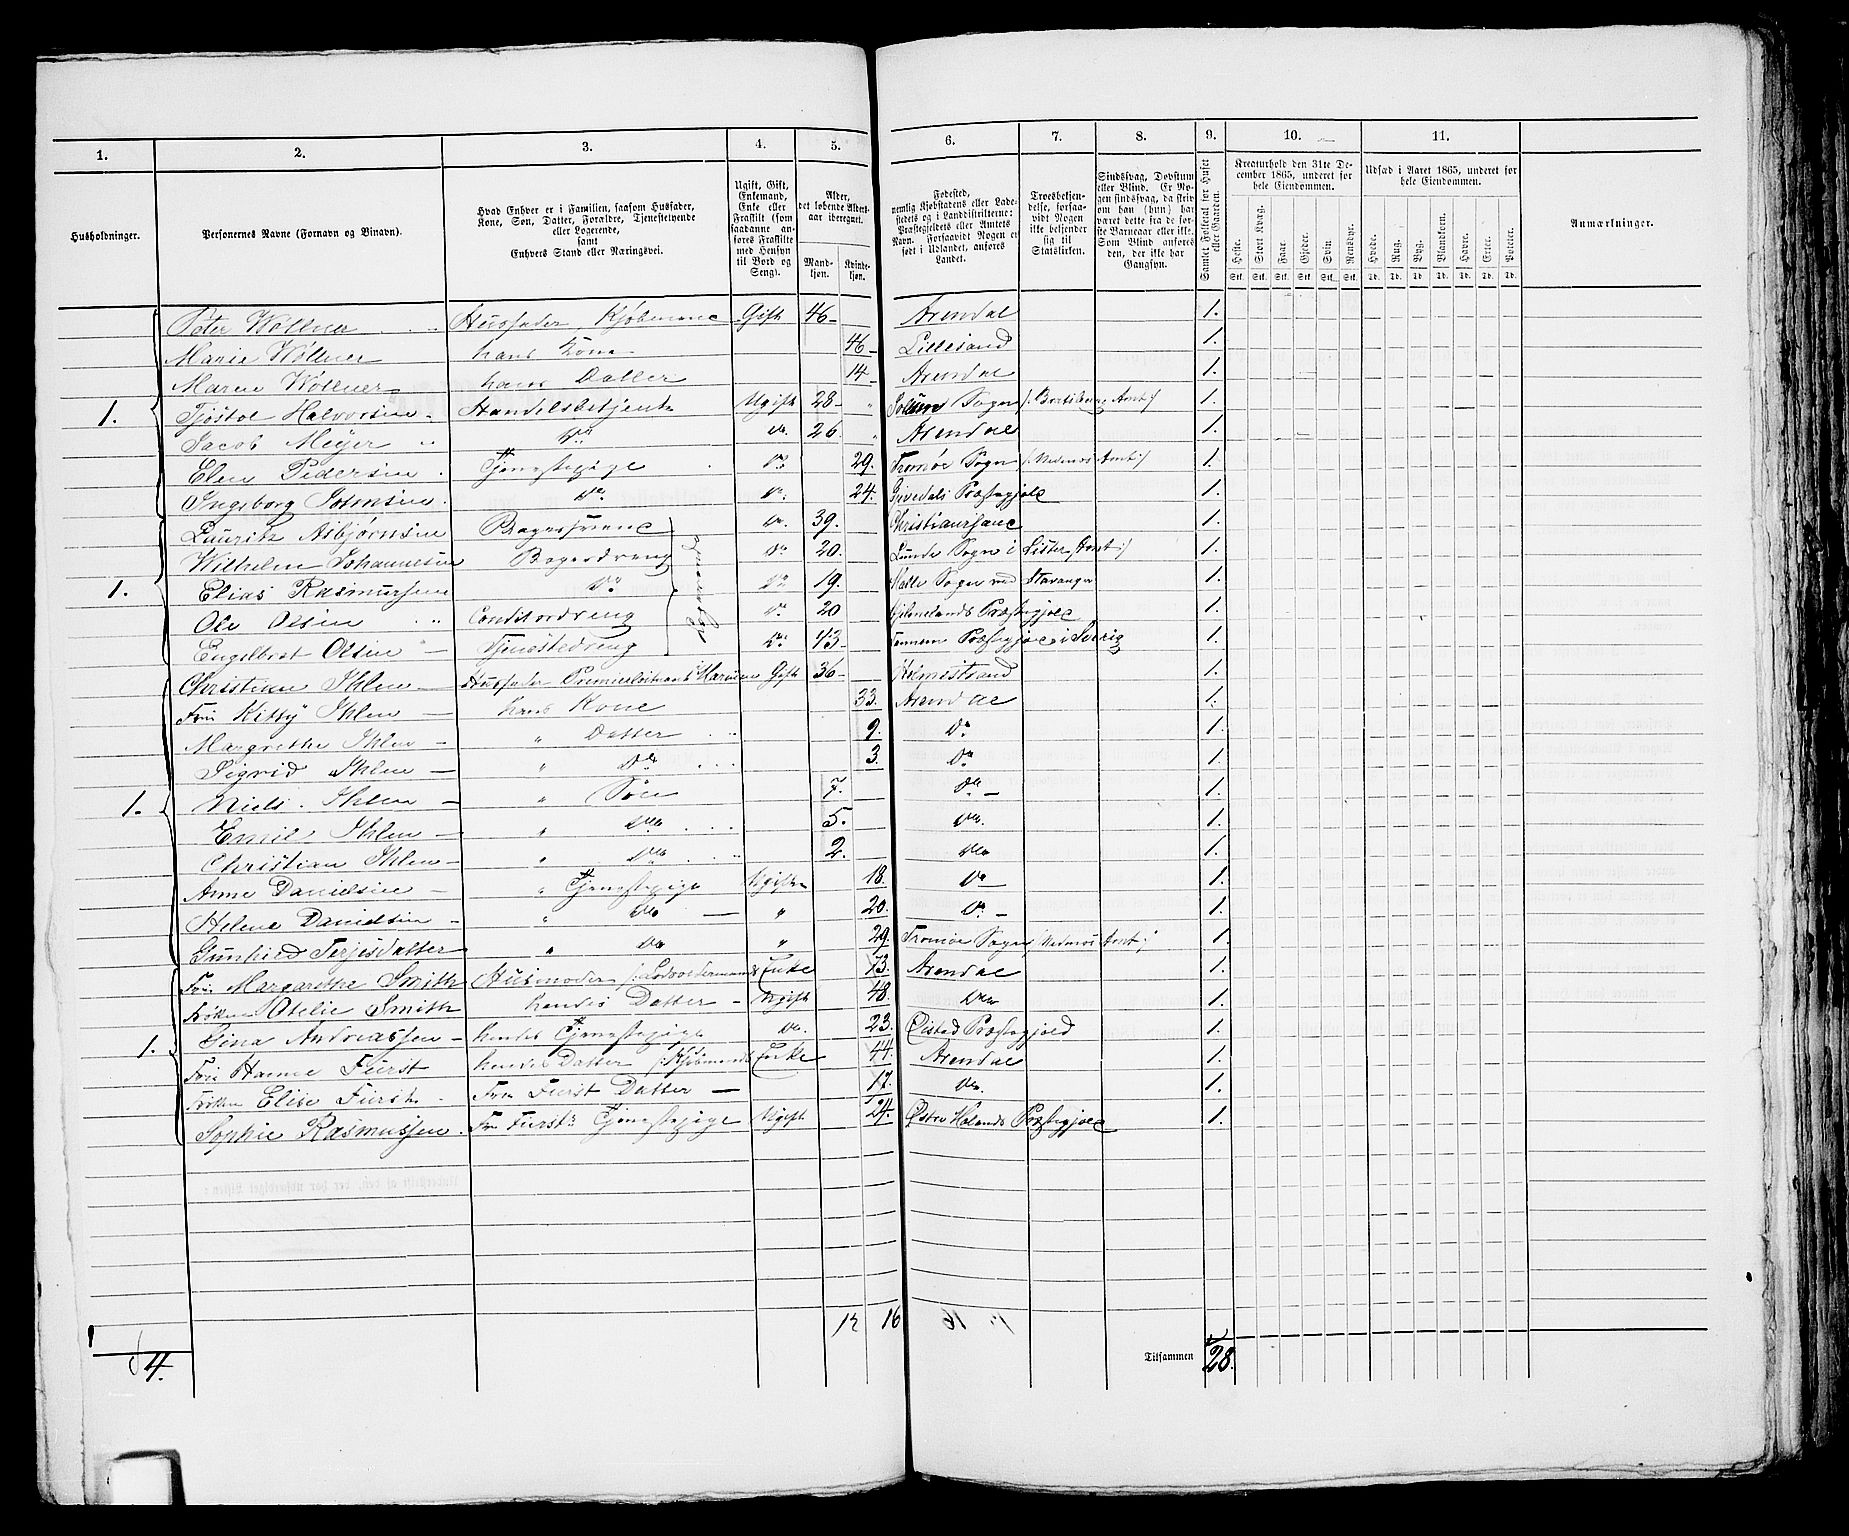 1. 2. 3. 4. 5. 6. 7. 8. 9. 10. 11.
Husholdninger.
Personernes Navne (Fornavn og Binavn).
Hvad Enhver er i Familien, saasom Husfader, Kone, Søn, Datter, Forældre, Tjenestetyende eller Logerende, samt Enhvers Stand eller Næringsvei.
Ugift, Gift, Enkemand, Enke eller Fraskilt (som saadanne anføres Fraskilte med Hensyn til Bord og Seng).
Alder, det løbende Aldersaar iberegnet.
Mandkjøn. Kvindekjøn.
Fødested, nemlig Kjøbstadens eller Ladestedets og i Landdistrikterne: Præstegjeldets eller Amtets Navn. Forsaavidt Nogen er født i Udlandet, anføres Landet.
Troesbekjendelse, forsaavidt Nogen ikke bekjender sig til Statskirken.
Sindssvag, Døvstum eller Blind. Er Nogen sindssvag, da skrives om han (hun) har været dette fra de første Barneaar eller ikke. Som Blind anføres den, der ikke har Gangsyn.
Samlet Folketal for Huset eller Gaarden.
Kreaturhold den 31te December 1865, underet for hele Eiendommen.
Heste. Stort Kvæg. Faar. Gjeder. Svin. Rensdyr.
Stk. Stk. Stk. Stk. Stk. Stk.
Udsæd i Aaret 1865, underet for hele Eiendommen.
Hvede. Rug. Byg. Blandkorn. Havre. Erter. Poteter.
Td. Td. Td. Td. Td. Td. Td.
Anmærkninger.
Peter Wøllner Husfader, Kjøbmand Gift 46 Arendal 1.
Marie Wøllner hans Kone 46 Lillesand 1.
Maren Wøllner hans Datter 14 Arendal 1.
1. Tjøstol Halvorsen Handelsbetjent Ugift 28 Solum Sogn /:Bratsberg Amt:/ 1.
Jacob Meyer Do Do 26 Arendal 1.
Elen Pedersen Tjenestepige Do 29. Tromøe Sogn /:Nedenæs Amt:/ 1.
Ingeborg Do Do 24. Præstegjeld 1.
Lauritz Asbjørnsen Bagersvend Do 39. Christianssand 1.
Wilhelm Johannesen Bagerdreng Do 20. Lunde Sogn i Lister Amt:/ 1.
1. Elias Rasmussen Do Do 19. Sogn ved Stavanger 1.
Ole Olsen Conditordreng Do 20 Præstegjeld 1.
Engelbret Olsen Tjenestedreng Do 13 Præstegjeld i Sverig 1.
Christian Ihlen Husfader Premierleitnant i Marinen Gift 36 Holmestrand 1.
Fru Kitty Ihlen hans Kone 33. Arendal 1.
Margrethe Ihlen " Datter 9. Do 1.
Sigrid Ihlen " Do 3. Do 1.
1. Niels Ihlen " Søn 7. Do 1.
Emil Ihlen " Do 5. Do 1.
Christian Ihlen " Do 2. Do 1.
Anne Danielsen " Tjenestepige Ugift 18. Do 1.
Helene Danielsen " Do " 20. Do 1.
Gunhild Terjesdatter " Do " 29. Tromøe Sogn /:Nedenæs Amt:/ 1.
Fru Margarethe Smith Husmoder Enke 73. Arendal 1.
Frøken Otelie Smith hendes Datter Ugift 48. Do 1.
1. Sina Andreassen hendes Tjenestepige Do 23. Øiestad Præstegjeld 1.
Fru Hanne Fürst hendes Datter /:Kjøbmands Enke 44. Arendal 1.
Frøken Elise Fürst Fru Fürst Datter 17. Do 1.
Sophie Rasmussen Fru Fürsts Tjenestepige Ugift 24. Østre Molands Præstegjeld 1.
12 16
4. Tilsammen 28.